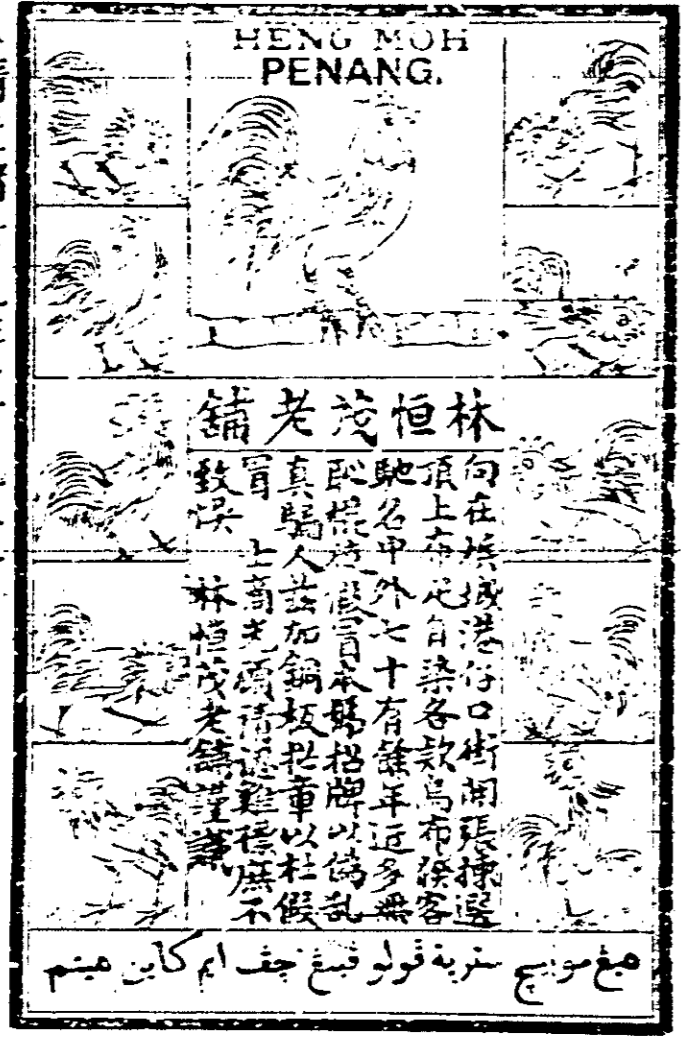 HENG MOH
PENANG.
林恒茂老舖
向在檳城港仔口街開張揀選
頂上布疋自染各款烏布發客
馳名中外七十有餘年近多無
恥棍徒假冒本號招牌以偽亂
真騙人茲加銅板批章以杜假
冒 士商光顧請認雞標庶不
致悞 林恒茂老舖謹識
هيڠ مو بيچ سترية ڤولو ڤينڠ چڤ ايم كاين هيتم